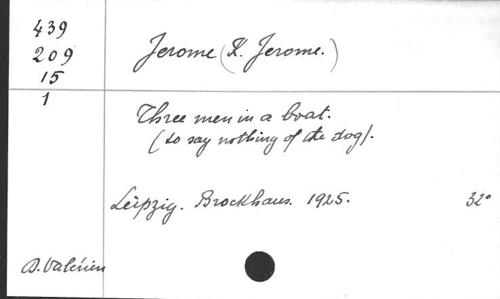 439
209
15
1
Jerome (K. Jerome.)
Three men in a boat.
(to say nothing of the dog).
Leipzig. Brockhaus. 1925. 32°
D. Valérien